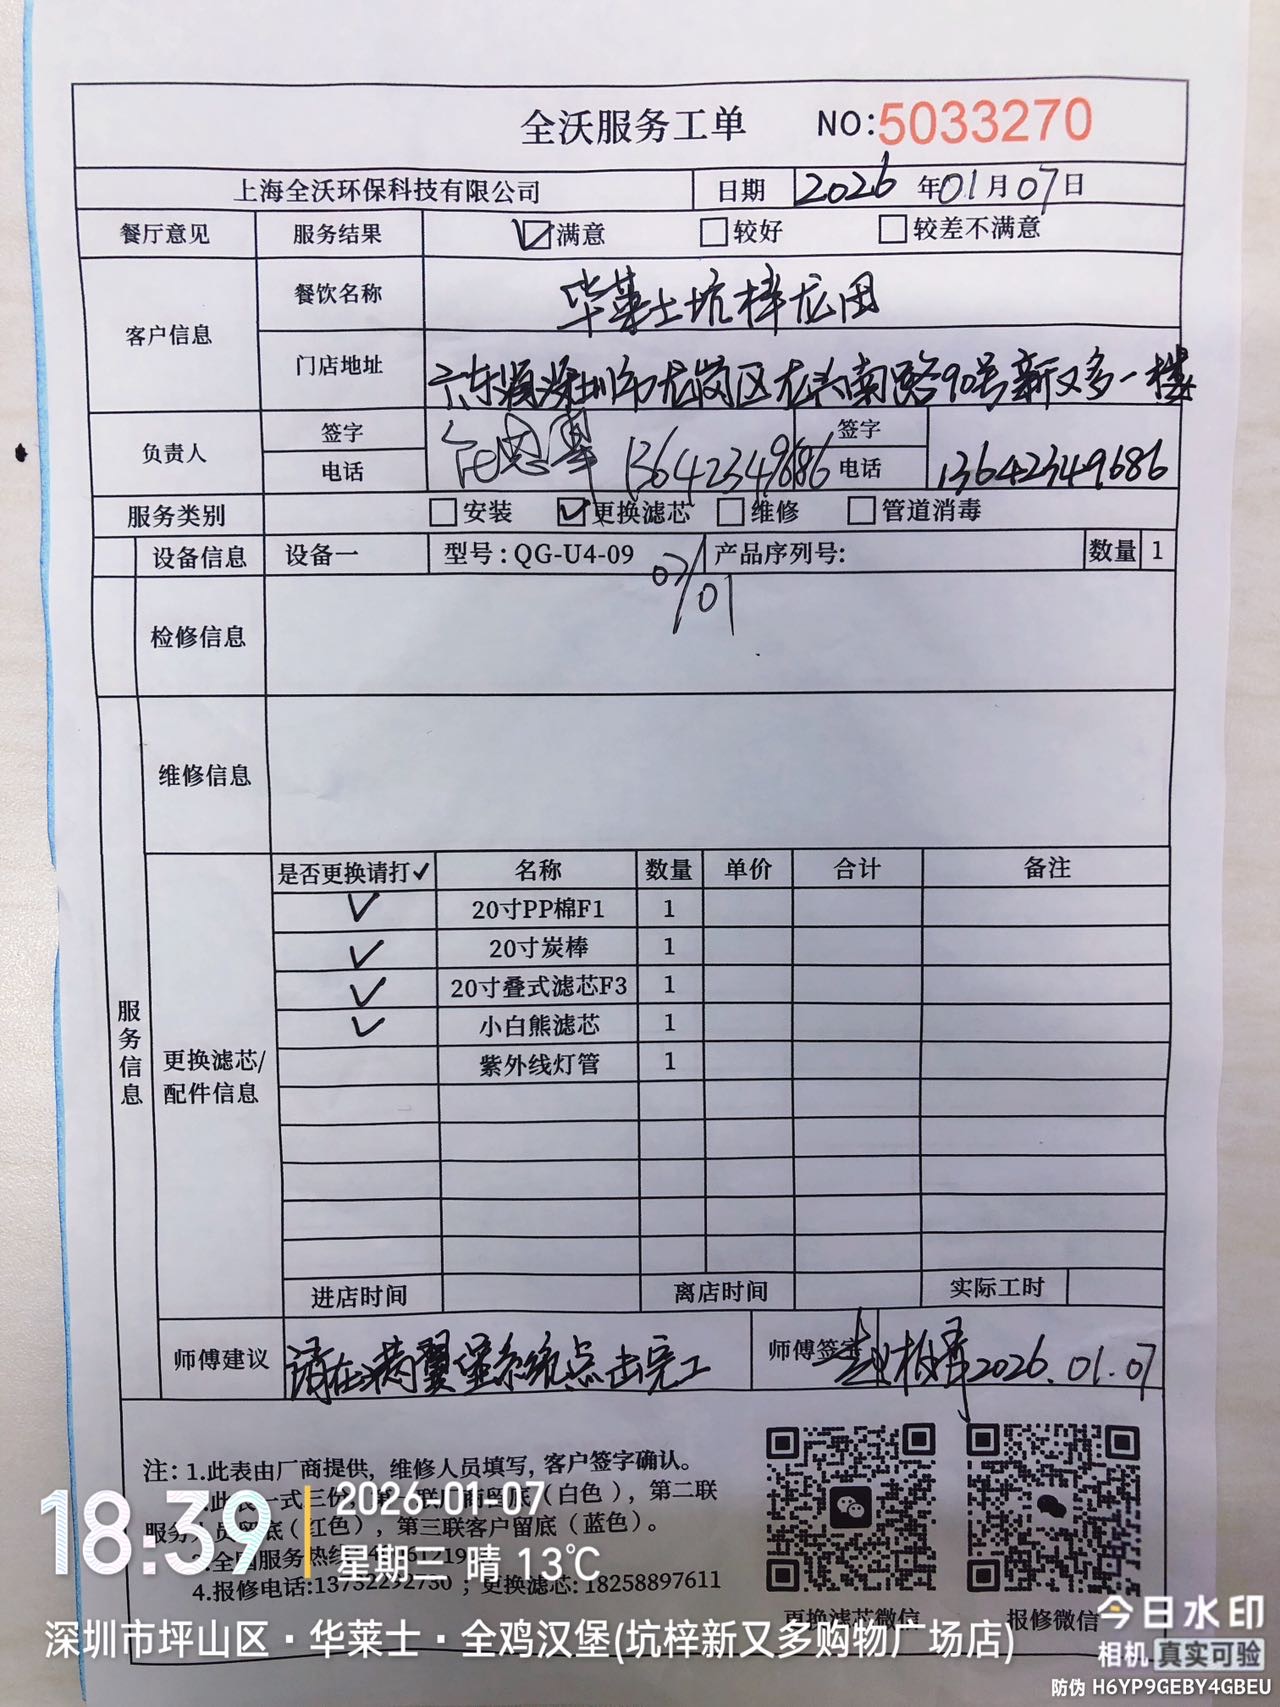 全沃服务工单 NO:5033270
上海全沃环保科技有限公司 日期 2026年01月07日
餐厅意见 服务结果 满意 较好 较差不满意
客户信息 餐饮名称 华莱士坑梓龙田
门店地址 广东省深圳市龙岗区龙兴南路90号新又多一楼
负责人 签字 13642349686 签字
电话 电话 13642349686
服务类别 安装 更换滤芯 维修 管道消毒
设备信息 设备一 型号:QG-U4-09 产品序列号: 数量 1
07/01
检修信息
维修信息
是否更换请打✓ 名称 数量 单价 合计 备注
✓ 20寸PP棉F1 1
✓ 20寸炭棒 1
✓ 20寸叠式滤芯F3 1
✓ 小白熊滤芯 1
紫外线灯管 1
服务信息
更换滤芯/
配件信息
进店时间 离店时间 实际工时
师傅建议 请在满翼堡系统点击完工 师傅签字 2026.01.07
注: 1.此表由厂商提供, 维修人员填写, 客户签字确认。
(白色), 第二联
(红色), 第三联客户留底(蓝色)。
3.全国服务热线
4.报修电话:13732292730 ; 更换滤芯: 18258897611
更换滤芯微信 报修微信
18:39
2026-01-07
星期三 晴 13℃
深圳市坪山区·华莱士·全鸡汉堡(坑梓新又多购物广场店)
今日水印
相机 真实可验
防伪 H6YP9GEBY4GBEU